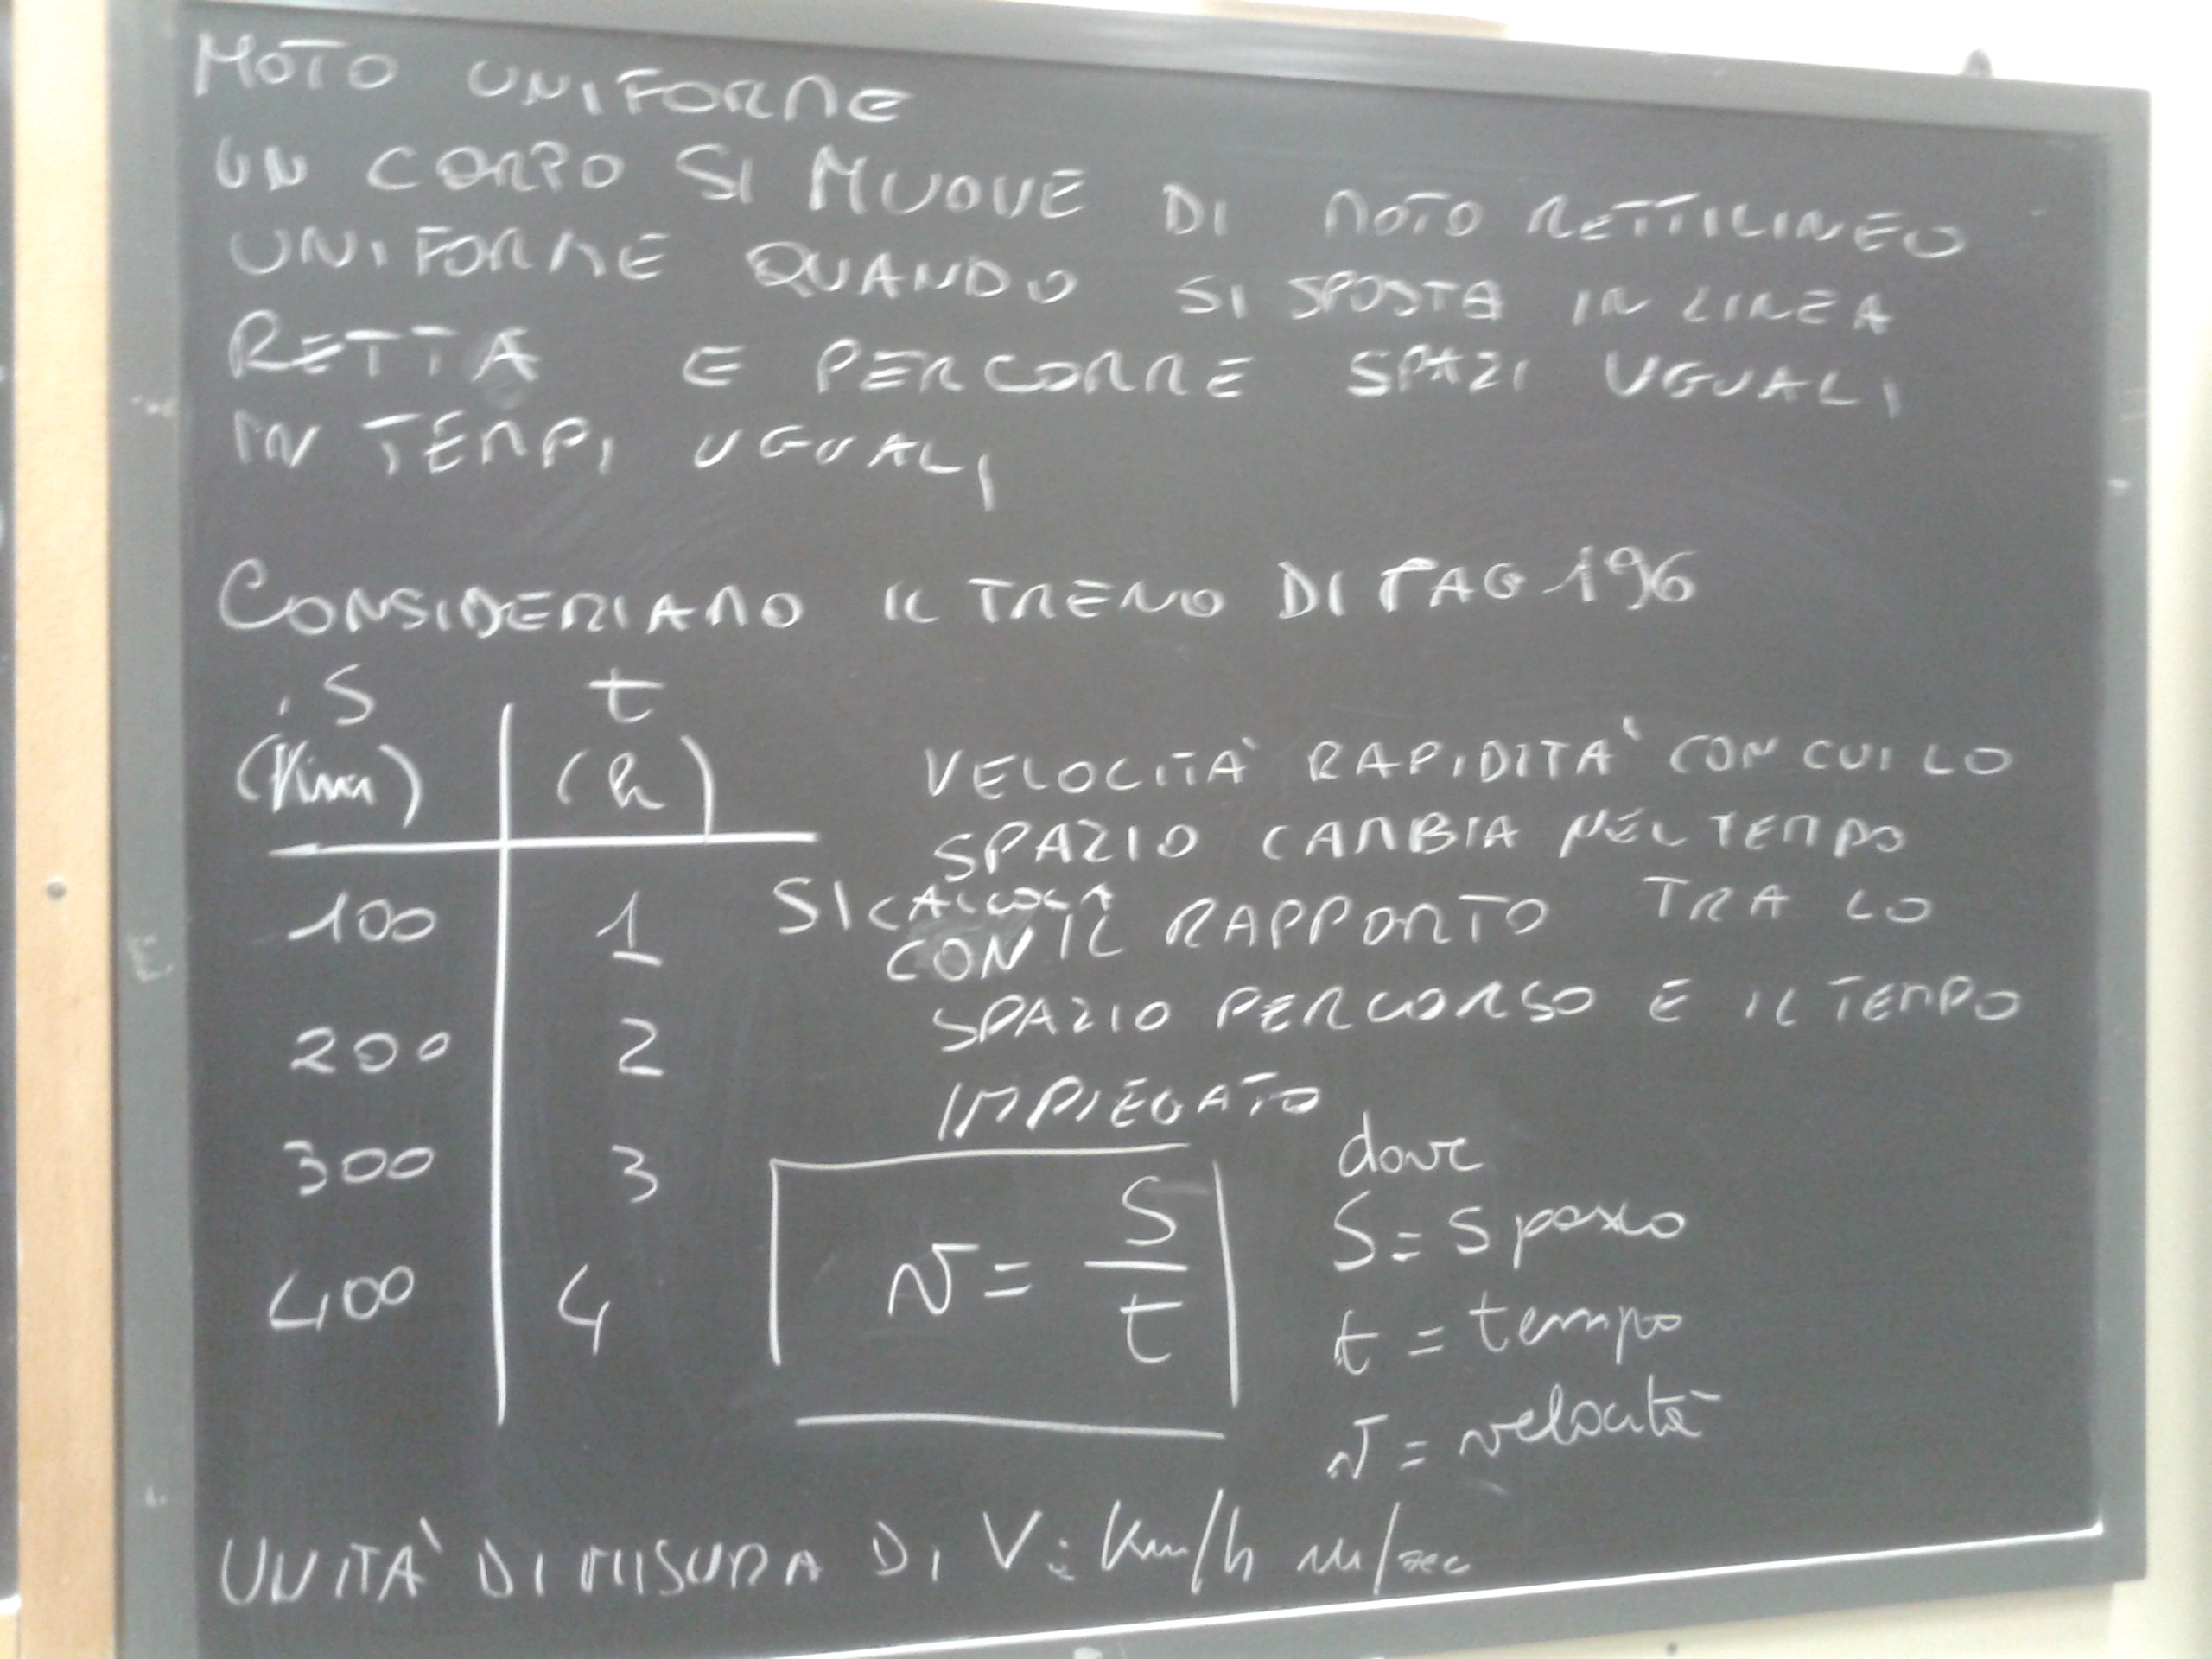 MOTO UNIFORME
UN CORPO SI MUOVE DI MOTO RETTILINEO
UNIFORME QUANDO SI SPOSTA IN LINEA
RETTA E PERCORRE SPAZI UGUALI
IN TEMPI UGUALI
CONSIDERIAMO IL TRENO DI PAG 196
S t
(Km) (h)
100 1
200 2
300 3
400 4
VELOCITÀ RAPIDITÀ CON CUI LO
SPAZIO CAMBIA NEL TEMPO
SI CALCOLA
CON IL RAPPORTO TRA LO
SPAZIO PERCORSO E IL TEMPO
IMPIEGATO
v = S/t
dove
S = spazio
t = tempo
v = velocità
UNITÀ DI MISURA DI V: Km/h m/sec